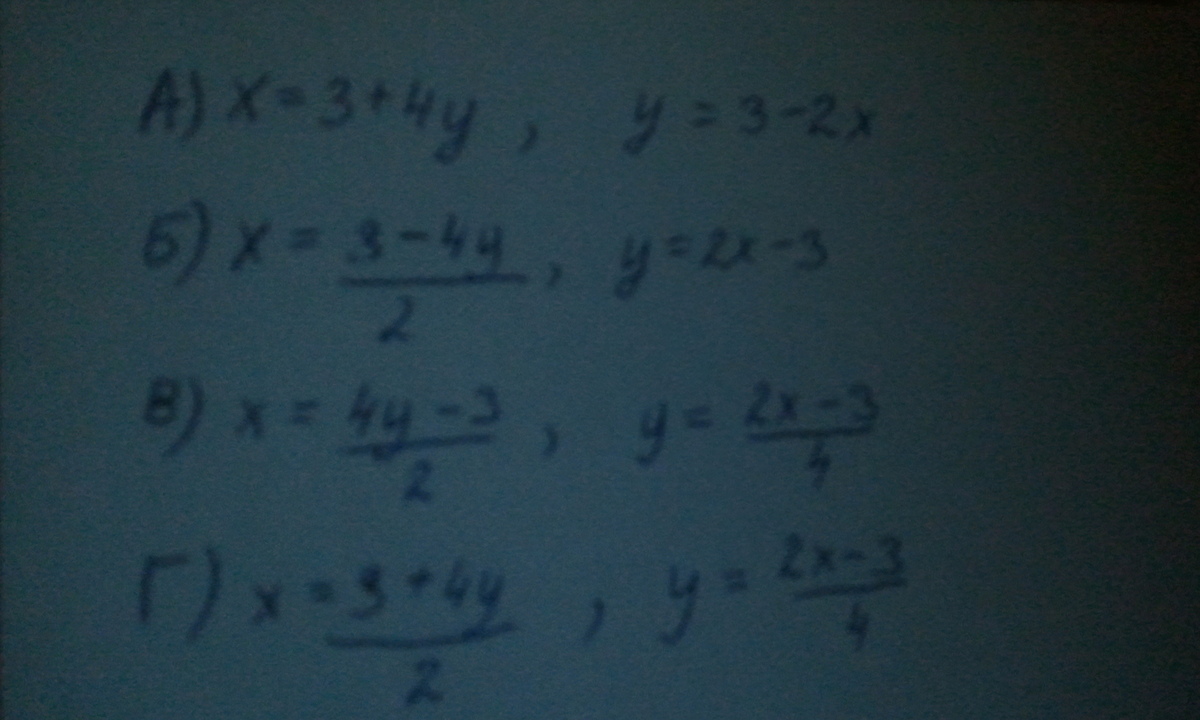 А) x = 3 + 4y , y = 3 - 2x
Б) x = (3 - 4y)/2 , y = 2x - 3
В) x = (4y - 3)/2 , y = (2x - 3)/4
Г) x = (3 + 4y)/2 , y = (2x - 3)/4